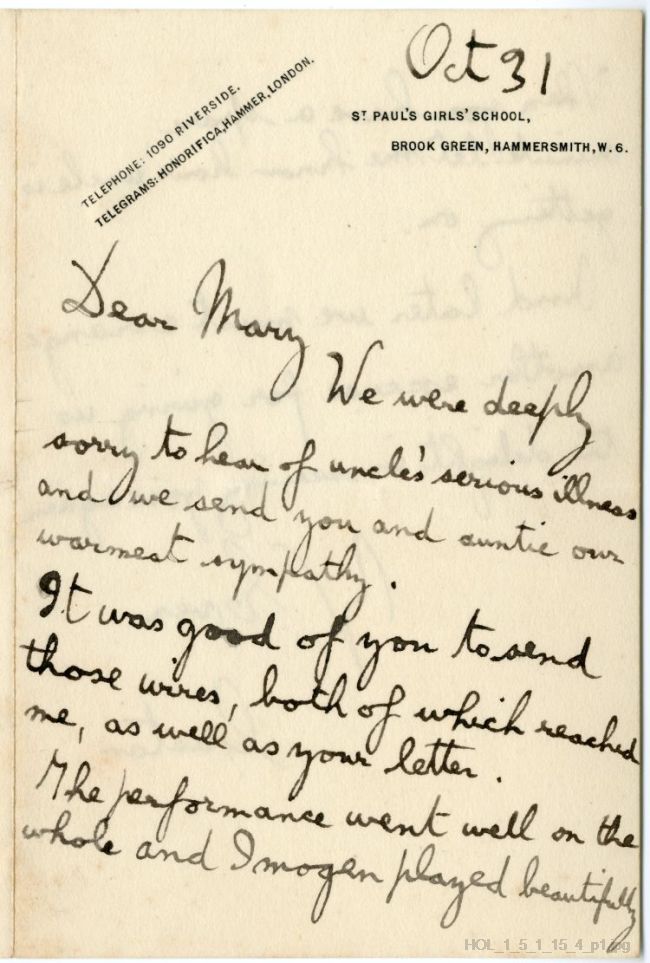 Oct 31
TELEPHONE: 1090 RIVERSIDE.
TELEGRAMS: HONORIFICA, HAMMER, LONDON.
ST PAUL'S GIRLS' SCHOOL,
BROOK GREEN, HAMMERSMITH, W. 6.
Dear Mary
We were deeply
sorry to hear of uncle's serious illness
and we send you and auntie our
warmest sympathy.
It was good of you to send
those wires, both of which reached
me, as well as your letter.
The performance went well on the
whole and Imogen played beautifully
HOL_1_5_1_15_4_p1.jpg